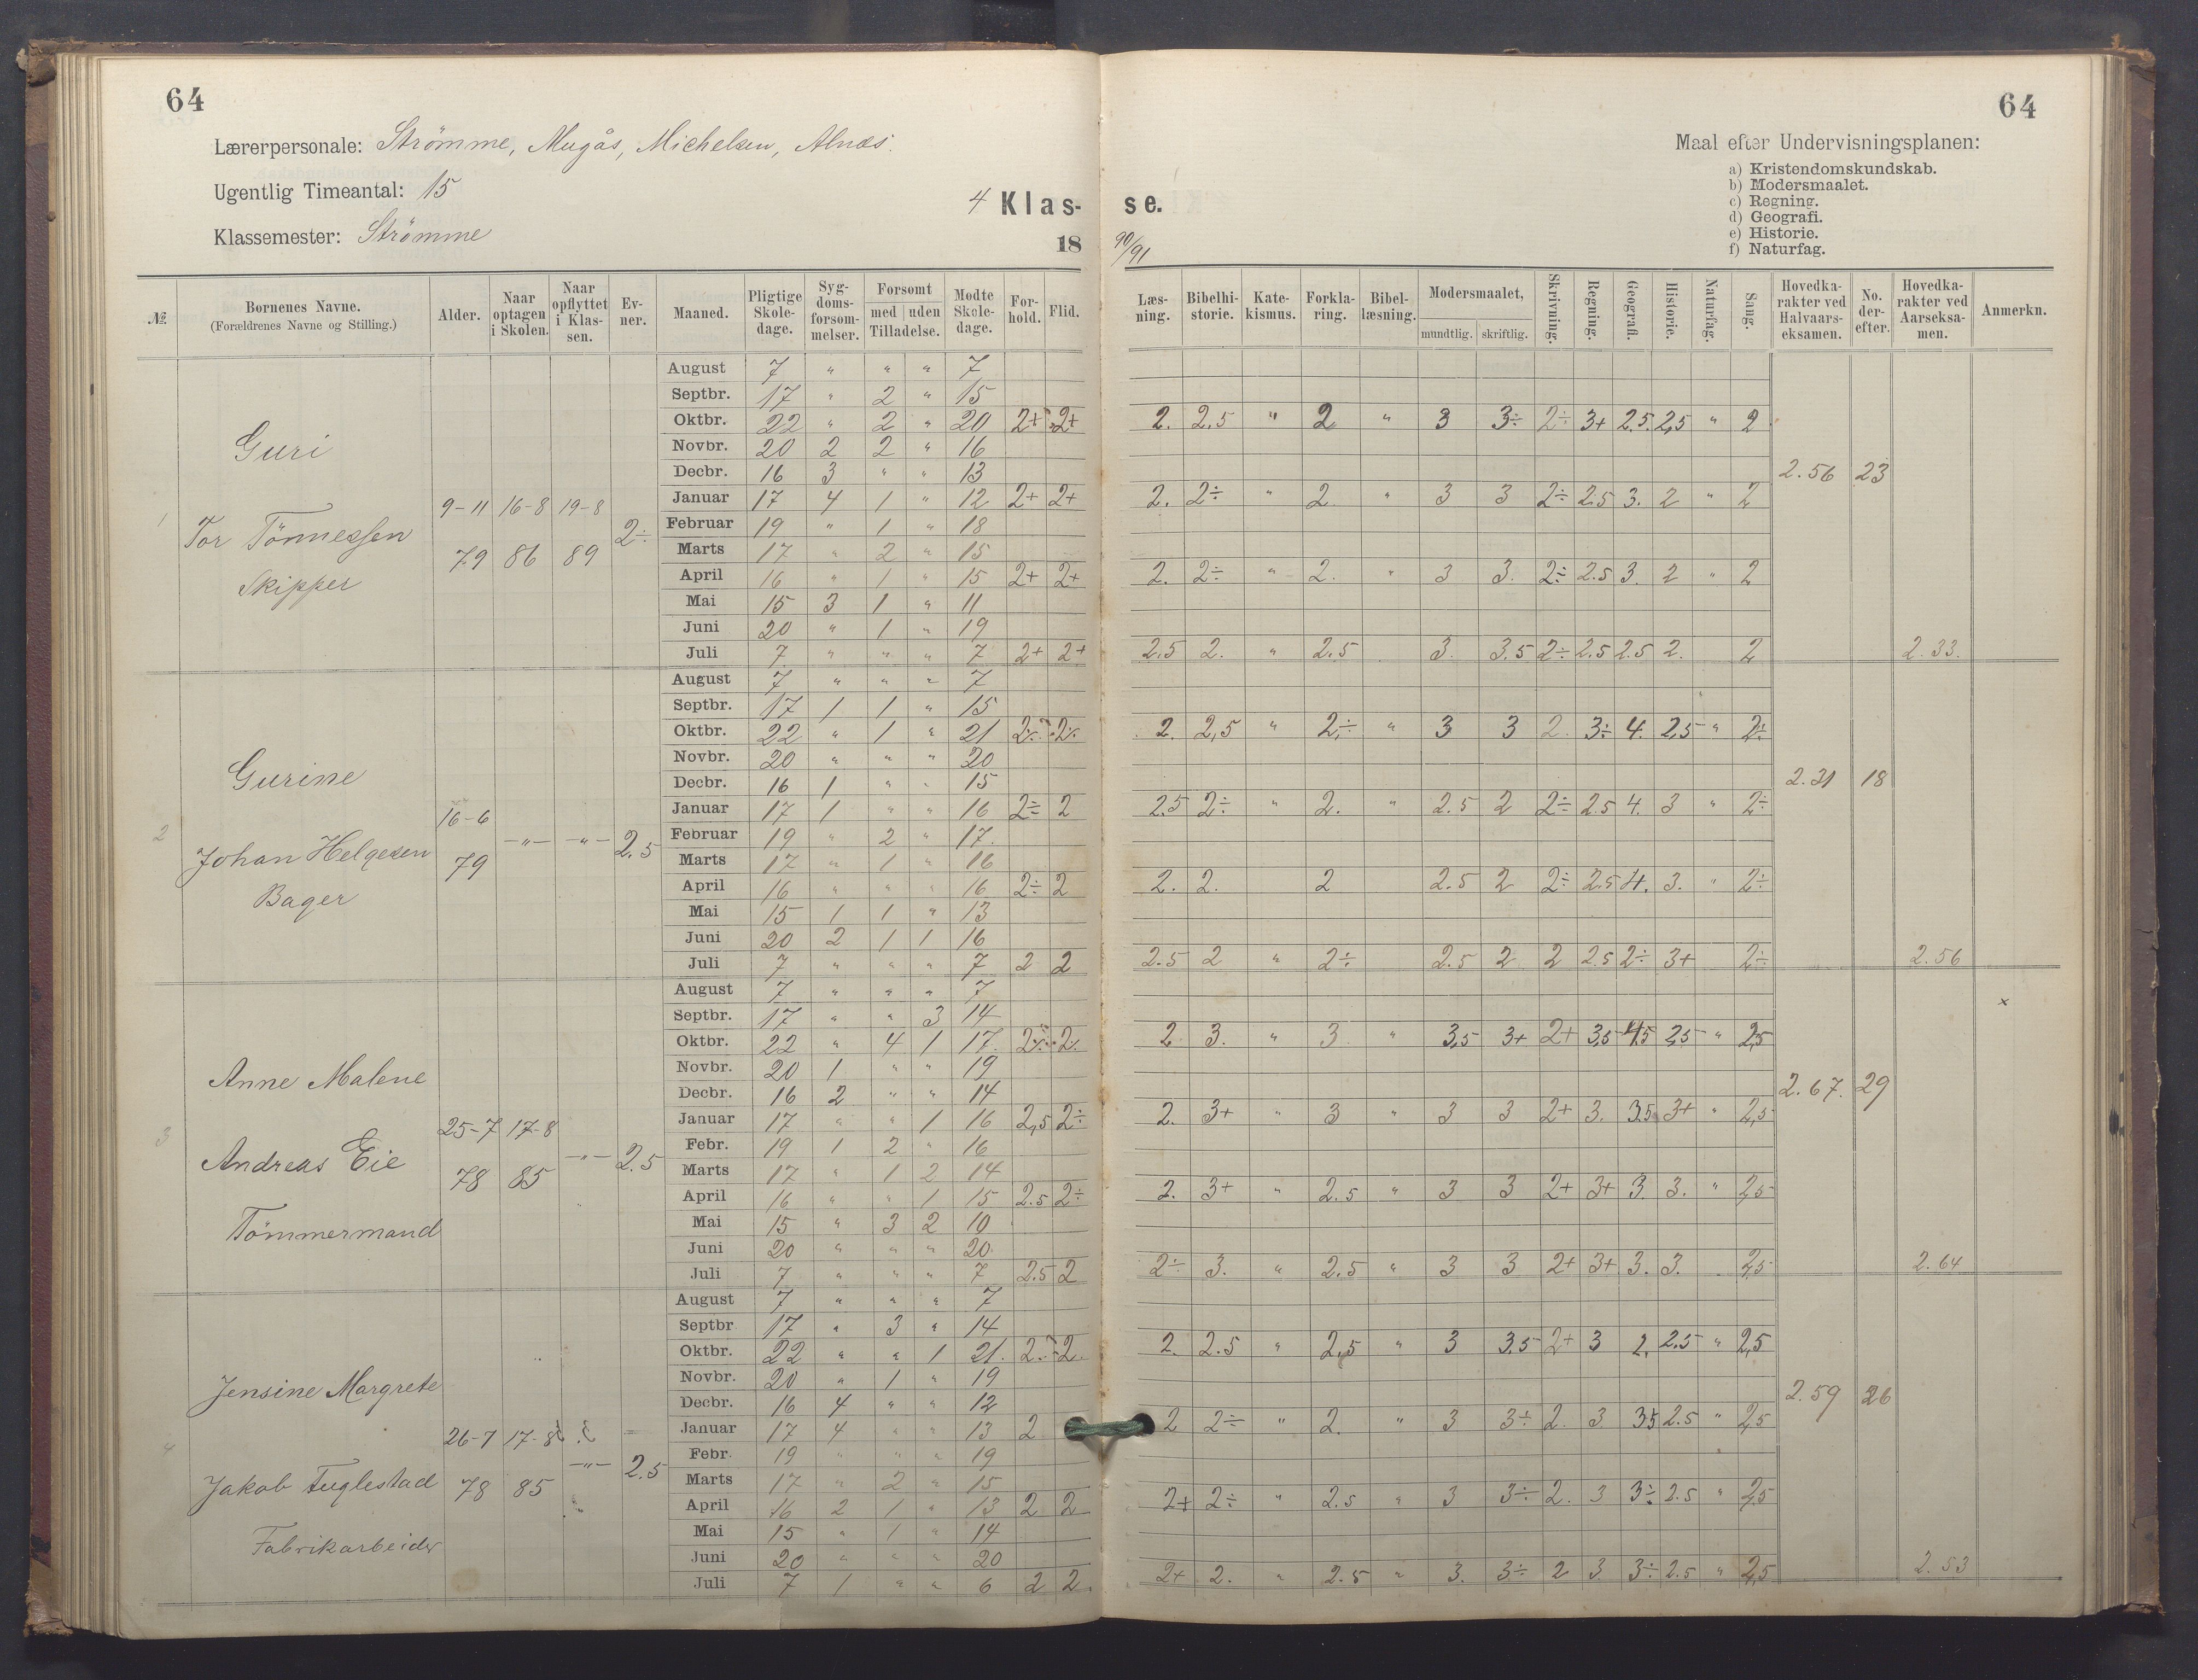 64
Lærerpersonale: Strömme, Mugås, Michelsen, Alnæs.
Ugentlig Timeantal: 15
Klassemester: Strömme
4 Klas-
18
64
Maal efter Undervisningsplanen:
a) Kristendomskundskab.
b) Modersmaalet.
c) Regning.
d) Geografi.
e) Historie.
f) Naturfag.
se.
90/91
№. Børnenes Navne. (Forældrenes Navne og Stilling.) Alder. Naar optagen i Skolen. Naar opflyttet i Klassen. Evner. Maaned. Pligtige Skoledage. Sygdomsforsømmelser. Forsømt med uden Tilladelse. Mødte Skoledage. Forhold. Flid.
Læsning. Bibelhistorie. Katekismus. Forklaring. Bibellæsning. Modersmaalet, mundtlig. skriftlig. Skrivning. Regning. Geografi. Historie. Naturfag. Sang. Hovedkarakter ved Halvaarseksamen. No. derefter. Hovedkarakter ved Aarseksamen. Anmerkn.
1
Guri
Tor Tönnessen
Skipper
9-11 79
16-8 86
19-8 89
2÷
August 7 " " " 7
Septbr. 17 " 2 " 15
Oktbr. 22 " 2 " 20 2+ 2+ 2. 2.5 " 2 " 3 3÷ 2÷ 3+ 2.5. 2,5 " 2
Novbr. 20 2 2 " 16
Decbr. 16 3 " " 13 2.56 23
Januar 17 4 1 " 12 2+ 2+ 2. 2÷ " 2 " 3 3 2÷ 2.5 3. 2 " 2
Februar 19 " 1 " 18
Marts 17 " 2 " 15
April 16 " 1 " 15 2+ 2+ 2. 2÷ " 2. " 3 3. 2÷ 2.5 3. 2 " 2
Mai 15 3 1 " 11
Juni 20 " 1 " 19
Juli 7 " " " 7 2+ 2+ 2.5 2. " 2.5 3. 3.5 2÷ 2.5 2.5 2. 2 2.33.
2
Gurine
Johan Helgesen
Bager
16-6 79
-"-
-"-
2.5
August 7 " " " 7
Septbr. 17 1 1 " 15
Oktbr. 22 " 1 " 21 2÷ 2÷ 2. 2,5 " 2÷ " 3 3 2. 3÷ 4. 2,5 " 2÷
Novbr. 20 " " " 20
Decbr. 16 1 " " 15 2.31 18
Januar 17 1 " " 16 2÷ 2 2.5 2÷ " 2. " 2.5 2 2÷ 2.5 4. 3 " 2÷
Februar 19 " 2 " 17.
Marts 17 " 1 " 16
April 16 " " " 16 2÷ 2 2. 2. 2 2.5 2 2÷ 2.5 4. 3. " 2÷
Mai 15 1 1 " 13
Juni 20 2 1 1 16
Juli 7 " " " 7 2 2 2.5 2 " 2÷ 2.5 2 2 2.5 2÷ 3+ 2÷ 2.56
3
Anne Malene
Andreas Eie
Tömmermand
25-7 78
17-8 85
-"-
2.5
August 7 " " " 7
Septbr. 17 " " 3 14 ×
Oktbr. 22 " 4 1 17. 2÷ 2÷ 2 3. " 3 " 3,5 3+ 2+ 3,5 4,5 2,5 " 2,5
Novbr. 20 1 " " 19
Decbr. 16 2 " " 14 2.67. 29
Januar 17 " " 1 16 2,5 2÷ 2. 3+ " 3 " 3 3 2+ 3. 3.5 3+ " 2,5
Febr. 19 1 2 " 16
Marts 17 " 1 2 14
April 16 " " 1 15 2.5 2÷ 2. 3+ " 2.5 " 3 3 2+ 3+ 3. 3. " 2,5
Mai 15 " 3 2 10
Juni 20 " " " 20.
Juli 7 " " " 7 2.5 2 2÷ 3. " 2.5 " 3 3 2+ 3+ 3. 3. 2,5 2.64
4
Jensine Margrete
Jakob Fuglestad
Fabrikarbeider
26-7 78
17-8 85
-"-
2.5
August 7 " " " 7
Septbr 17 " 3 " 14
Oktbr. 22 " " 1 21. 2. 2. 2. 2.5 " 2,5 " 3 3.5 2+ 3 2. 2.5 " 2,5
Novbr. 20 " 1 " 19
Decbr. 16 4 " " 12 2.59 26
Januar 17 4 " " 13 2 2 2÷ " 2. " 3 3÷ 2. 3 3.5 2.5 " 2,5
Febr. 19 " " " 19
Marts 17 " 2 " 15
April 16 2 1 " 13 2 2 2+ 2÷ " 2.5 " 3 3÷ 2. 3 3÷ 2.5 " 2,5
Mai 15 " 1 " 14
Juni 20 " " " 20
Juli 7 1 " " 6 2 2. 2+ 2. " 2.5 " 3. 3÷ 2 3. 3÷ 2.5 " 2,5 2.53